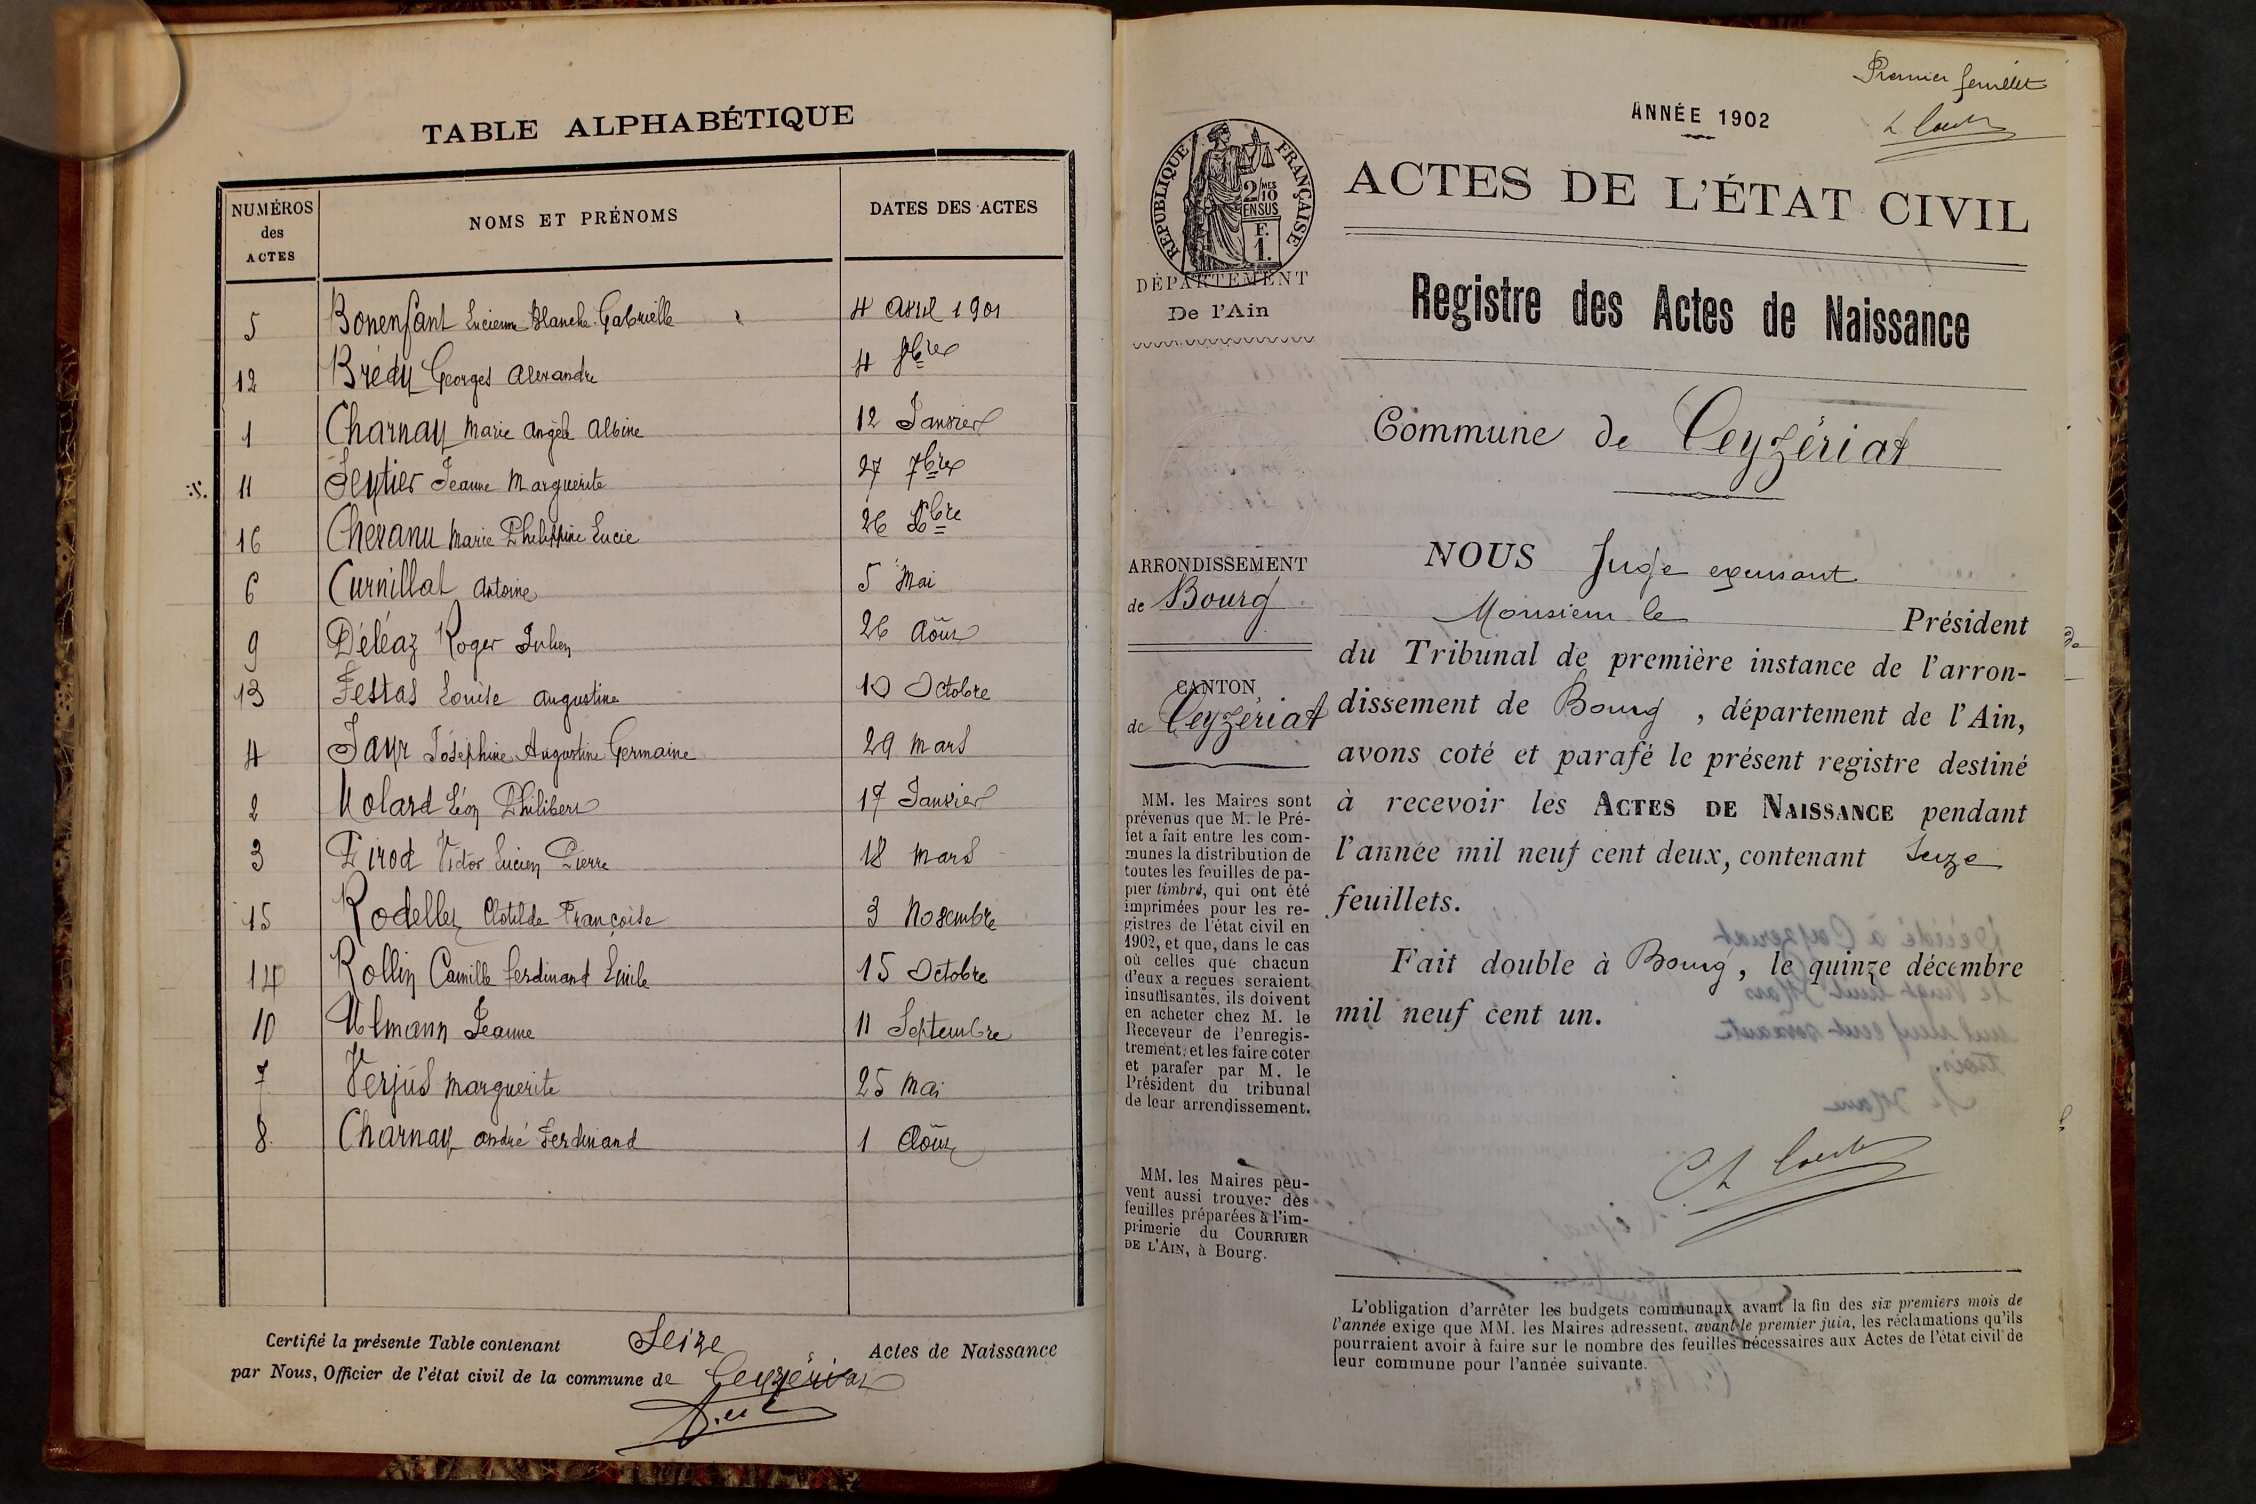 TABLE ALPHABÉTIQUE
NUMÉROS des ACTES NOMS ET PRÉNOMS DATES DES ACTES
5 Bonenfant Lucienne Blanche Gabrielle 4 avril 1901
12 Brédy Georges Alexandre 4 8bre
1 Charnay Marie Angèle Albine 12 Janvier
11 Seytier Jeanne Marguerite 27 7bre
16 Chevanu Marie Philippine Lucie 26 Xbre
6 Curnillat Antoine 5 Mai
9 Déléaz Roger Julien 26 Août
13 Festas Louise Augustine 10 Octobre
4 Jayr Joséphine Augustine Germaine 29 Mars
2 Molard Léon Philibert 17 Janvier
3 Pirod Victor Lucien Pierre 18 Mars
15 Rodellez Clotilde Françoise 3 Novembre
14 Rollin Camille Ferdinand Emile 15 Octobre
10 Ulmann Jeanne 11 Septembre
7 Verjus Marguerite 25 Mai
8 Charnay André Ferdinand 1 Août
Certifié la présente Table contenant Seize Actes de Naissance
par Nous, Officier de l'état civil de la commune de Ceyzériat
Premier feuillet
ANNÉE 1902
RÉPUBLIQUE FRANÇAISE
2/10 MES
EN SUS
F.
1.
ACTES DE L'ÉTAT CIVIL
DÉPARTEMENT
De l'Ain
Registre des Actes de Naissance
Commune de Ceyzériat
ARRONDISSEMENT
de Bourg
CANTON
de Ceyzériat
MM. les Maires sont
prévenus que M. le Pré-
fet a fait entre les com-
munes la distribution de
toutes les feuilles de pa-
pier timbré, qui ont été
imprimées pour les re-
gistres de l'état civil en
1902, et que, dans le cas
où celles que chacun
d'eux a reçues seraient
insuffisantes, ils doivent
en acheter chez M. le
Receveur de l'enregis-
trement, et les faire coter
et parafer par M. le
Président du tribunal
de leur arrondissement.
MM. les Maires peu-
vent aussi trouver des
feuilles préparées à l'im-
primerie du COURRIER
DE L'AIN, à Bourg.
NOUS Juge exerçant
Monsieur le Président
du Tribunal de première instance de l'arron-
dissement de Bourg, département de l'Ain,
avons coté et parafé le présent registre destiné
à recevoir les ACTES DE NAISSANCE pendant
l'année mil neuf cent deux, contenant Seize
feuillets.
Fait double à Bourg, le quinze décembre
mil neuf cent un.
L'obligation d'arrêter les budgets communaux avant la fin des six premiers mois de
l'année exige que MM. les Maires adressent, avant le premier juin, les réclamations qu'ils
pourraient avoir à faire sur le nombre des feuilles nécessaires aux Actes de l'état civil de
leur commune pour l'année suivante.